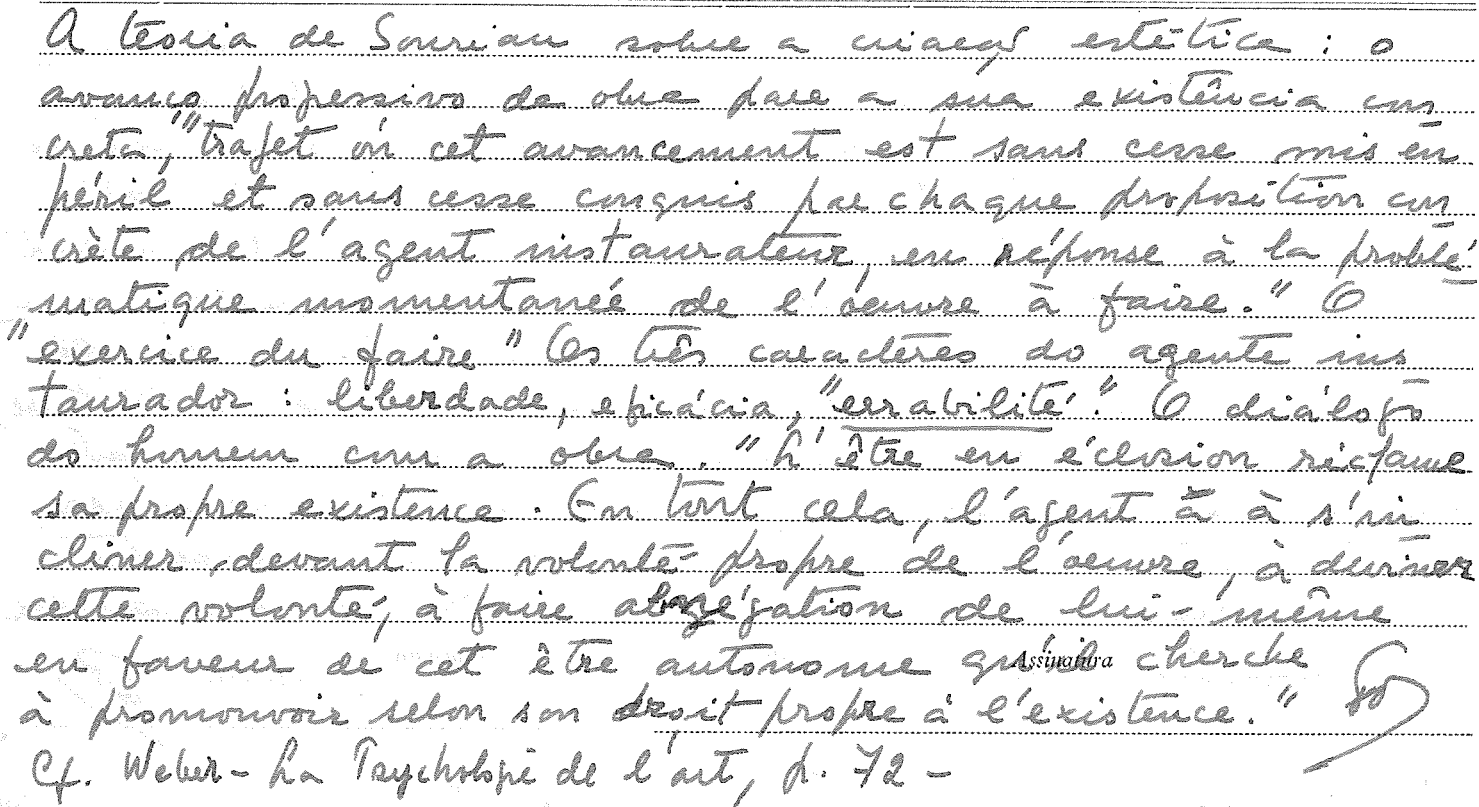 A teoria de Souriau sobre a criação estética : o
avanço progressivo da obra para a sua existência con
creta, "trajet où cet avancement est sans cesse mis en
péril et sans cesse conquis par chaque proposition con
crète de l'agent instaurateur, en réponse à la problé
matique momentanée de l'oeuvre à faire." O
"exercice du faire" Os três caracteres do agente ins
taurador : liberdade, eficácia, "errabilité". O diálogo
do homem com a obra. "L'être en éclosion réclame
sa propre existence. En tout cela, l'agent a à s'in
cliner devant la volonté propre de l'oeuvre, à deviner
cette volonté, à faire abnégation de lui-même
en faveur de cet être autonome qu'il cherche
Assinatura
à promouvoir selon son droit propre à l'existence."
Cf. Weber - La Psychologie de l'art, p. 72 -